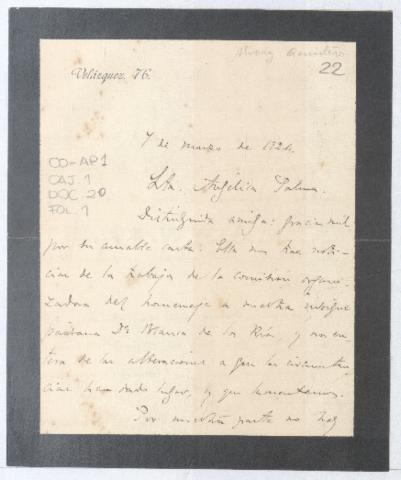 Alvarez Quintero
22
Velázquez, 76.
7 de marzo de 1924.
CO-AP1
CAJ. 1
DOC. 20
FOL. 1
Srta. Angélica Palma.
Distinguida amiga: gracias mil
por su amable carta. Ella nos trae noti-
cias de los trabajos de la comisión organi-
zadora del homenaje a nuestra insigne
paisana Dª Blanca de los Ríos, y nos en-
tera de las alteraciones a que las circunstan-
cias han dado lugar, y que lamentamos.
Por nuestra parte no hay